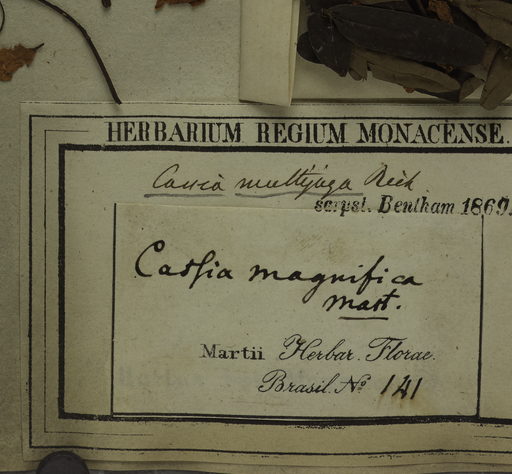 HERBARIUM REGIUM MONACENSE.
Cassia multijuga Rich
scrpst. Bentham 1869.
Cassia magnifica
Mart.
Martii Herbar. Florae
Brasil. No 141